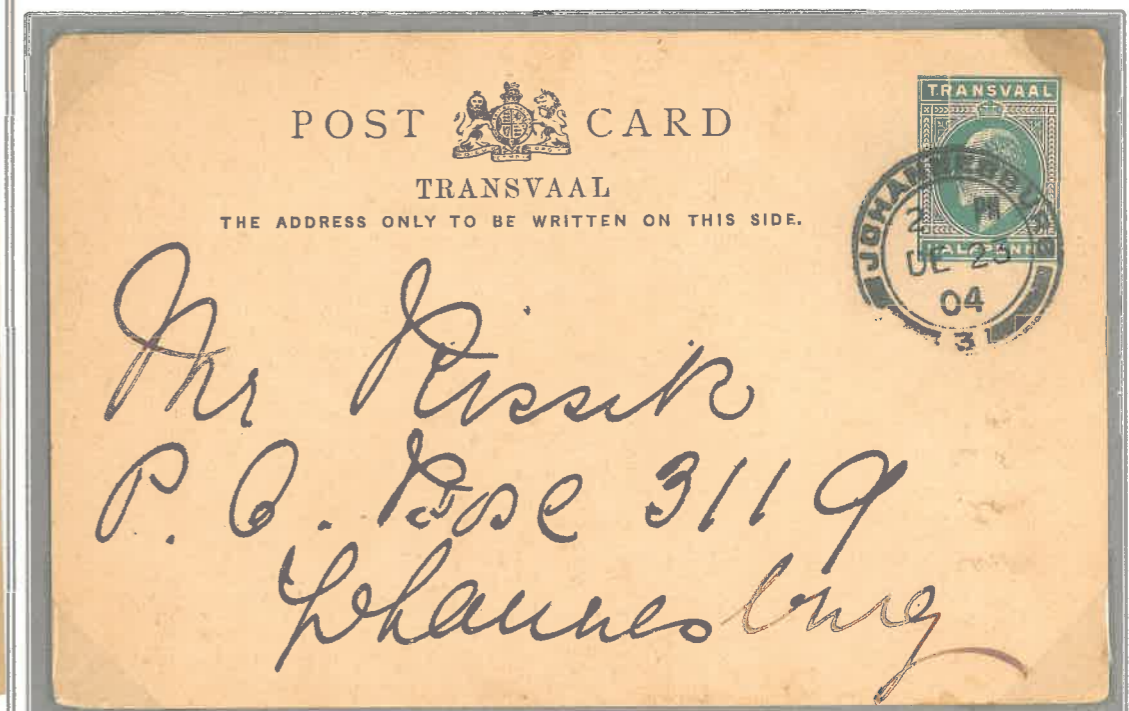 POST CARD
TRANSVAAL
THE ADDRESS ONLY TO BE WRITTEN ON THIS SIDE.
TRANSVAAL
HALFPENNY
JOHANNESBURG
2 PM
DE 23
04
31
Mr Rissik
P. O. Box 3119
Johannesburg